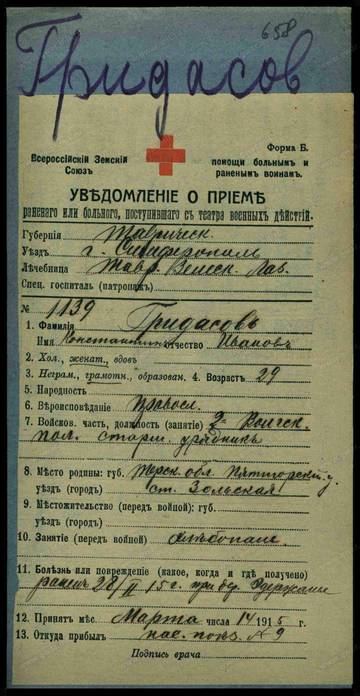 658
Гридасов
Форма Б.
Всероссійскій Земскій
Союзъ
помощи больнымъ и
раненымъ воинамъ.
УВѢДОМЛЕНІЕ О ПРІЕМѢ
раненаго или больного, поступившаго съ театра военныхъ дѣйствій.
Губернія Тавріческ.
Уѣздъ г. Симферополь
Лѣчебница Тавр. Земск. Лаз.
Спец. госпиталь (патронаж)
№ 1139
1. Фамилія Гридасовъ
Имя Константинъ отчество Ивановъ
2. Хол., женат., вдовъ
3. Неграм., грамотн., образован. 4. Возрастъ 29
5. Народность
6. Вѣроисповѣданіе Правосл.
7. Войсков. часть, должность (занятіе) 2 Волгск.
пол. старш. урядникъ
8. Мѣсто родины: губ. Терск. обл. Пятигорск. у.
уѣздъ (городъ) ст. Зольская
9. Мѣстожительство (передъ войной): губ.
уѣздъ (городъ)
10. Занятіе (передъ войной) хлѣбопаш.
11. Болѣзнь или поврежденіе (какое, когда и гдѣ получено)
раненъ 28/II 15 г.
12. Принятъ мѣс. Марта числа 14 1915 г.
13. Откуда прибылъ № 9
Подпись врача